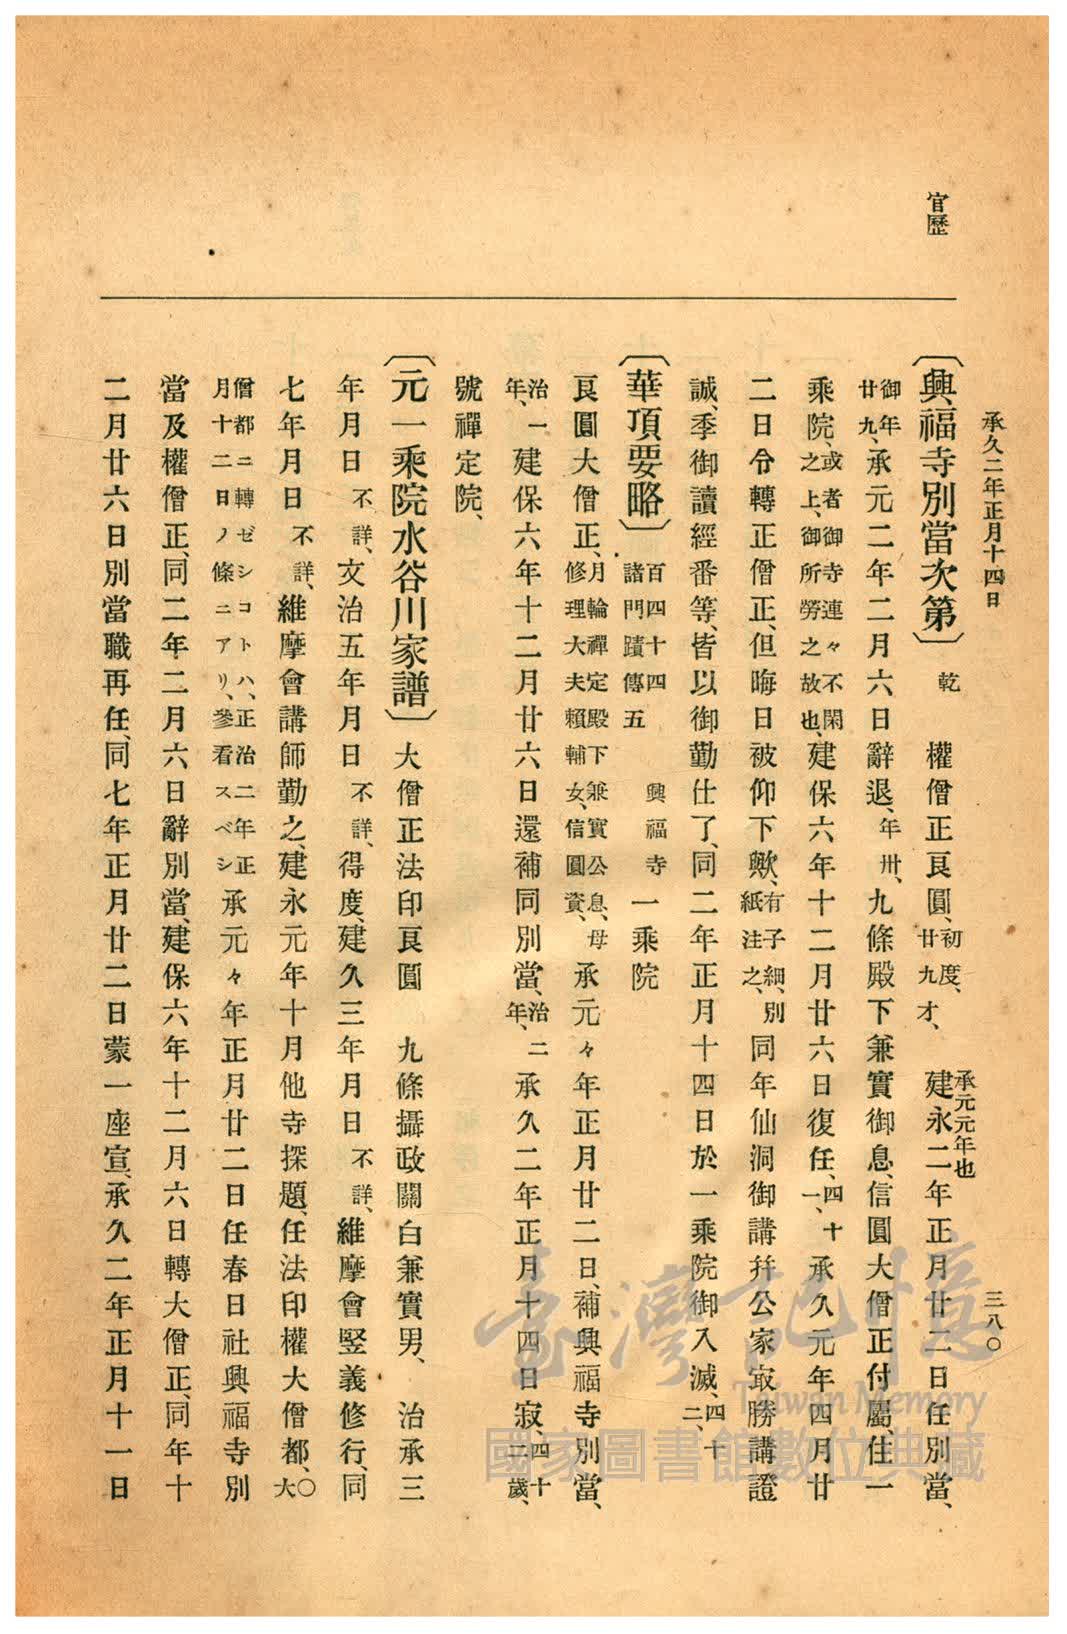 官歷
承久二年正月十四日
三八〇
〔興福寺別當次第〕乾 權僧正良圓、初度、廿九才、 建永二年正月廿二日任別當、
承元元年也
御年廿九、承元二年二月六日辭退、年卅、九條殿下兼實御息、信圓大僧正付屬、住一
乘院、或者御寺連々不閑之上、御所勞之故也、建保六年十二月廿六日復任、四十一、承久元年四月廿
二日令轉正僧正、但晦日被仰下歟、有子細、別紙注之、同年仙洞御講幷公家㝡勝講證
誠、季御讀經番等、皆以御勤仕了、同二年正月十四日於一乘院御入滅、四十二、
〔華頂要略〕百四十四諸門蹟傳五 興福寺一乘院
良圓大僧正、月輪禪定殿下兼實公息、母修理大夫賴輔女、信圓資、承元々年正月廿二日、補興福寺別當、
治一年、建保六年十二月廿六日還補同別當、治二年、承久二年正月十四日寂、四十二歲、
號禪定院、
〔元一乘院水谷川家譜〕大僧正法印良圓 九條攝政關白兼實男、 治承三
年月日不詳、文治五年月日不詳、得度、建久三年月日不詳、維摩會竪義修行、同
七年月日不詳、維摩會講師勤之、建永元年十月他寺探題、任法印權大僧都、〇大
僧都ニ轉ゼシコトハ、正治二年正月十二日ノ條ニアリ、參看スベシ承元々年正月廿二日任春日社興福寺別
當及權僧正、同二年二月六日辭別當、建保六年十二月六日轉大僧正、同年十
二月廿六日別當職再任、同七年正月廿二日蒙一座宣、承久二年正月十一日
臺灣記憶
Taiwan Memory
國家圖書館數位典藏